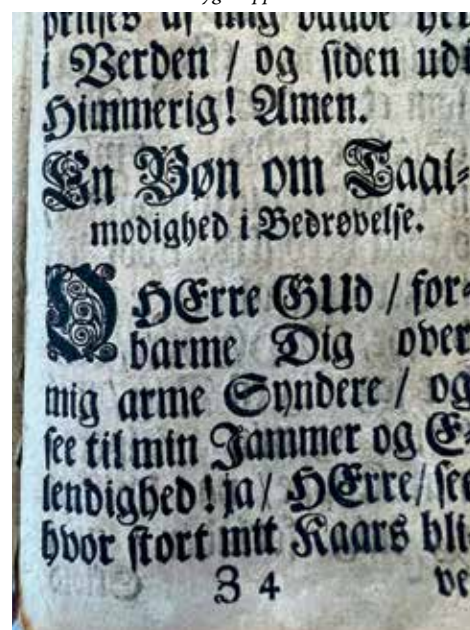 prises af mig baade her
i Verden / og siden udi
Himmerig! Amen.
En Bøn om Taal-
modighed i Bedrøvelse.
O HErre GUd / for-
barme Dig over
mig arme Syndere / og
see til min Jammer og E-
lendighed! ja / HErre / see
hvor stort mit Kaars bli-
3 4 ve